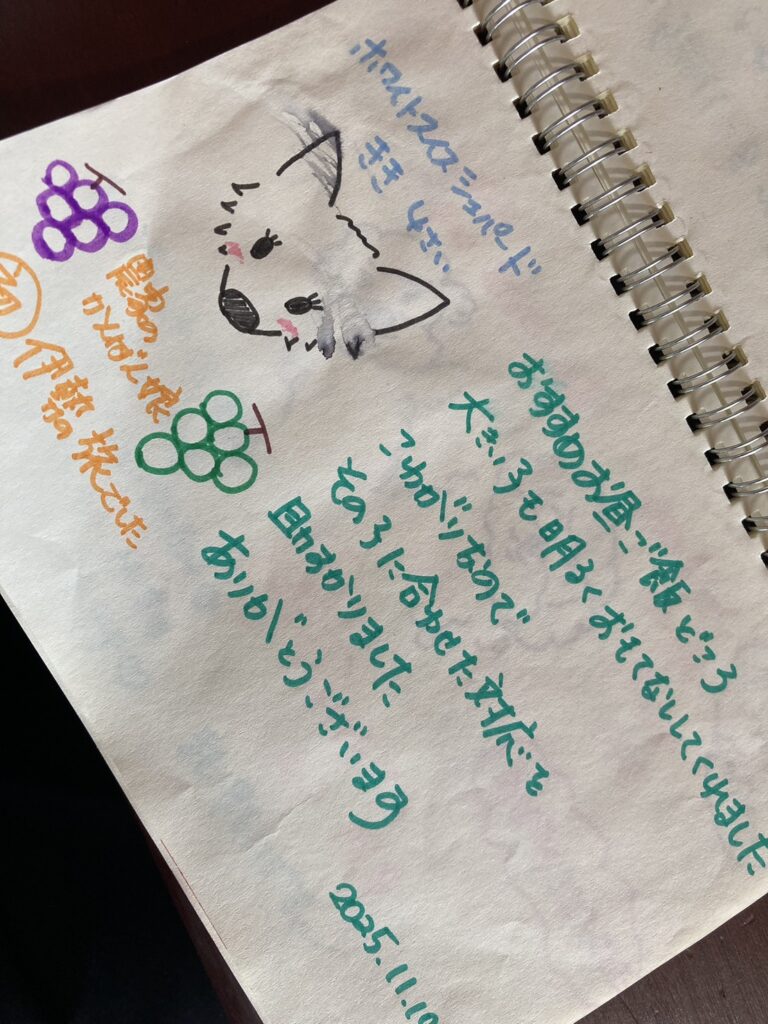 ホワイトスイスシェパード
きき 4さい
農家の
かんばん娘
初 伊勢旅でした
おすすめお昼ご飯どころ
大きい子も明るくおもてなししてくれました
こわがりなので
その子に合わせた対応も
助かりました
ありがとうございます
2025.11.10